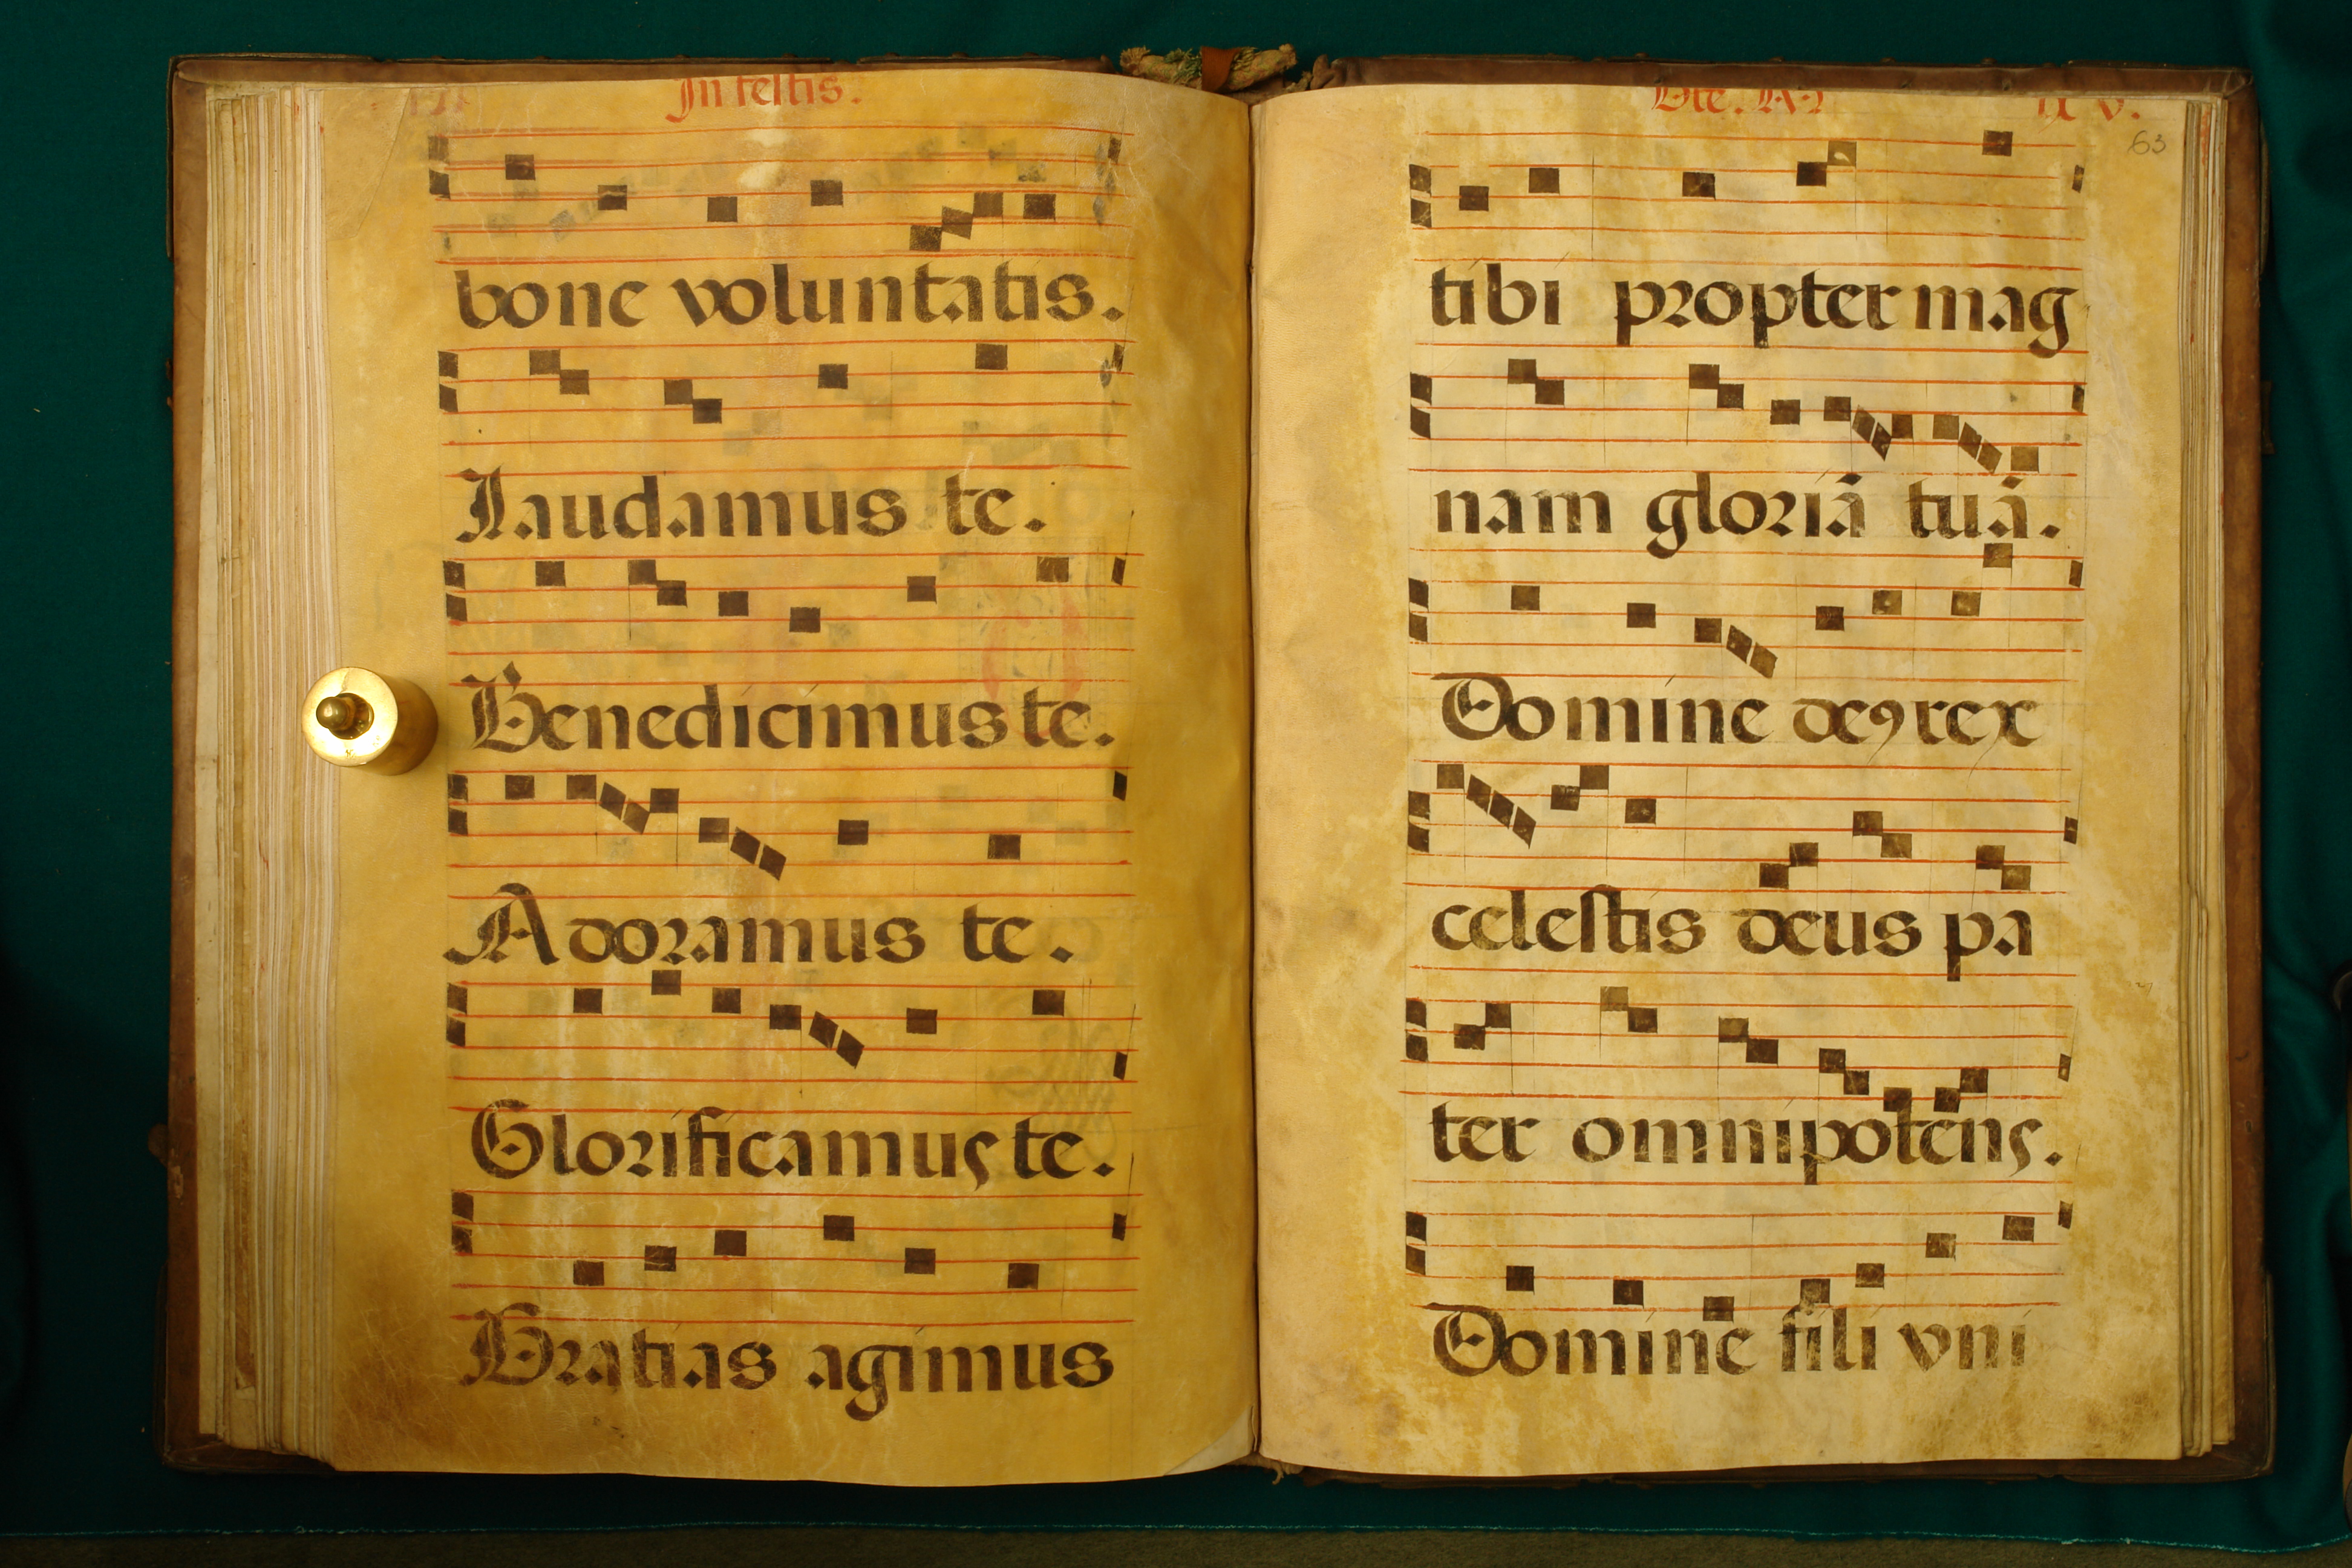 In festis.
bone voluntatis.
Laudamus te.
Benedicimus te.
Adoramus te.
Glorificamus te.
Gratias agimus
63
tibi propter mag
nam gloriā tuā.
Domine deꝰ rex
celestis deus pa
ter omnipotēns.
Domine fili vni